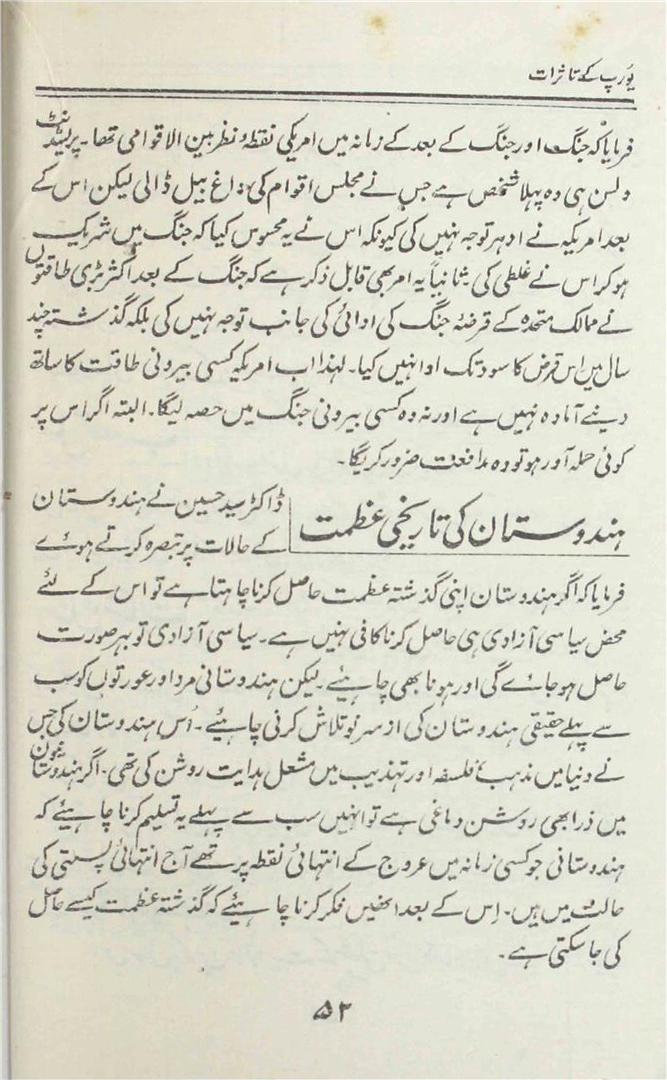 یورپ کے تاثرات
فرمایا کہ جنگ اور جنگ کے بعد کے زمانہ میں امریکی نقطۂ نظر بین الاقوامی تھا۔ پریسیڈنٹ
ولسن ہی وہ پہلا شخص ہے جس نے مجلس اقوام کی داغ بیل ڈالی لیکن اس کے
بعد امریکہ نے ادہر توجہ نہیں کی کیونکہ اس نے یہ محسوس کیا کہ جنگ میں شریک
ہو کر اس نے غلطی کی۔ ثانیاً یہ امر بھی قابل ذکر ہے کہ جنگ کے بعد اکثر بڑی طاقتوں
نے ممالک متحدہ کے قرضۂ جنگ کی ادائی کی جانب توجہ نہیں کی بلکہ گذشتہ چند
سال میں اس قرض کا سود تک ادا نہیں کیا۔ لہذا اب امریکہ کسی بیرونی طاقت کا ساتھ
دینے آمادہ نہیں ہے اور نہ وہ کسی بیرونی جنگ میں حصہ لیگا۔ البتہ اگر اس پر
کوئی حملہ آور ہو تو وہ مدافعت ضرور کریگا۔
ہندوستان کی تاریخی عظمت
ڈاکٹر سید حسین نے ہندوستان
کے حالات پر تبصرہ کرتے ہوئے
فرمایا کہ اگر ہندوستان اپنی گذشتہ عظمت حاصل کرنا چاہتا ہے تو اس کے لئے
محض سیاسی آزادی ہی حاصل کرنا کافی نہیں ہے۔ سیاسی آزادی تو بہر صورت
حاصل ہو جائے گی اور ہونا بھی چاہئیے۔ لیکن ہندوستانی مرد اور عورتوں کو سب
سے پہلے حقیقی ہندوستان کی از سر نو تلاش کرنی چاہئیے۔ اُس ہندوستان کی جس
نے دنیا میں مذہب، فلسفہ اور تہذیب میں مشعل ہدایت روشن کی تھی۔ اگر ہندوستانیوں
میں ذرا بھی روشن دماغی ہے تو انہیں سب سے پہلے یہ تسلیم کرنا چاہئیے کہ
ہندوستانی جو کسی زمانہ میں عروج کے انتہائی نقطہ پر تھے آج انتہائی پستی کی
حالت میں ہیں۔ اِس کے بعد انھیں فکر کرنا چاہئیے کہ گذشتہ عظمت کیسے حاصل
کی جا سکتی ہے۔
۵۲